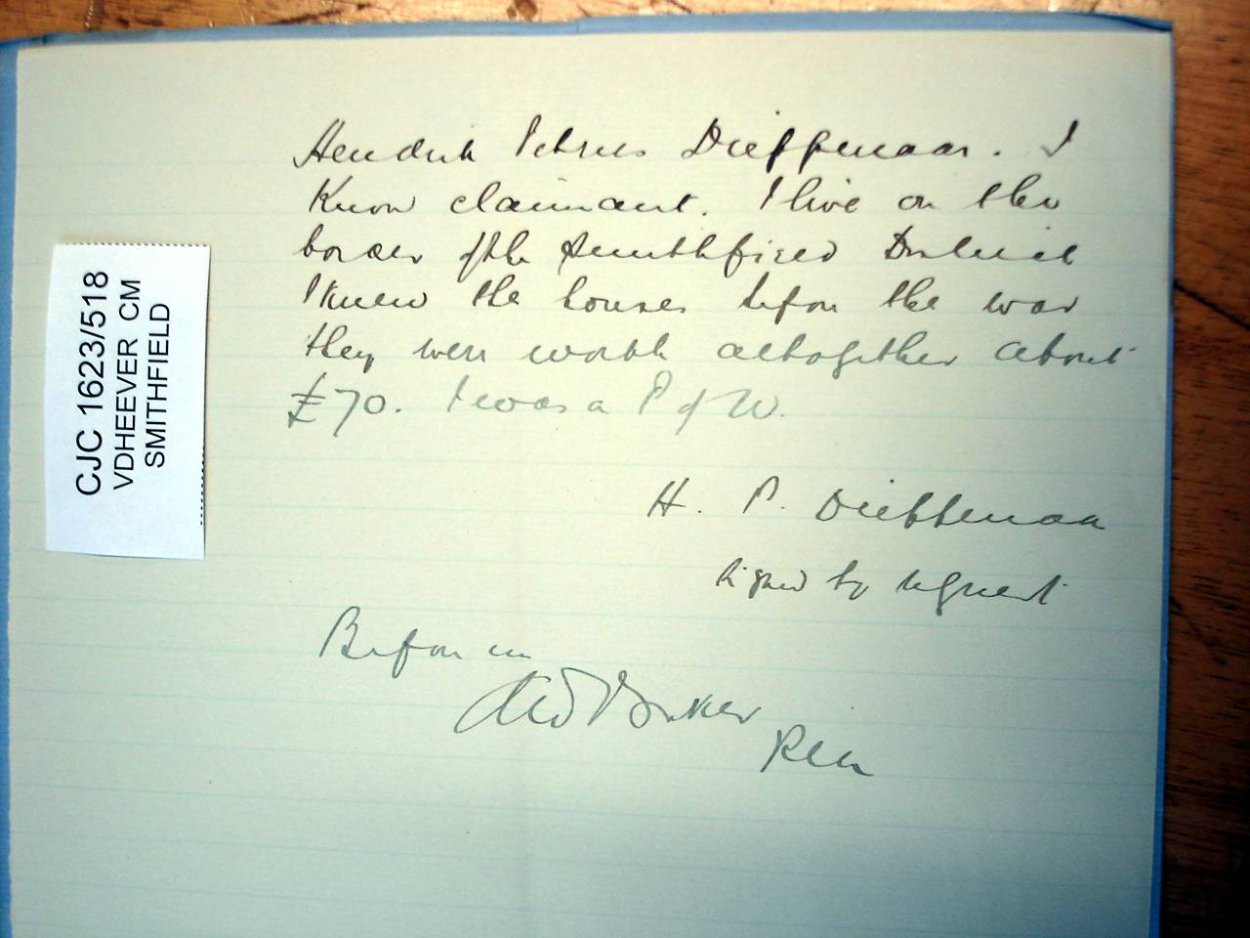 CJC 1623/518
VDHEEVER CM
SMITHFIELD
Hendrik Petrus Dieppenaar. I
know claimant. I live on the
border of the Smithfield District
I knew the houses before the war
they were worth altogether about
£70. I was a P of W.
H. P. Dieppenaar
Signed by request
Before me